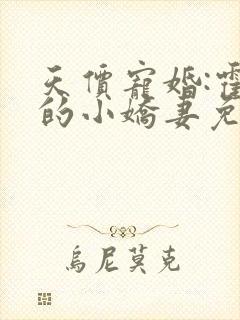 天價寵婚:霍
的小嬌妻免
烏尼莫克